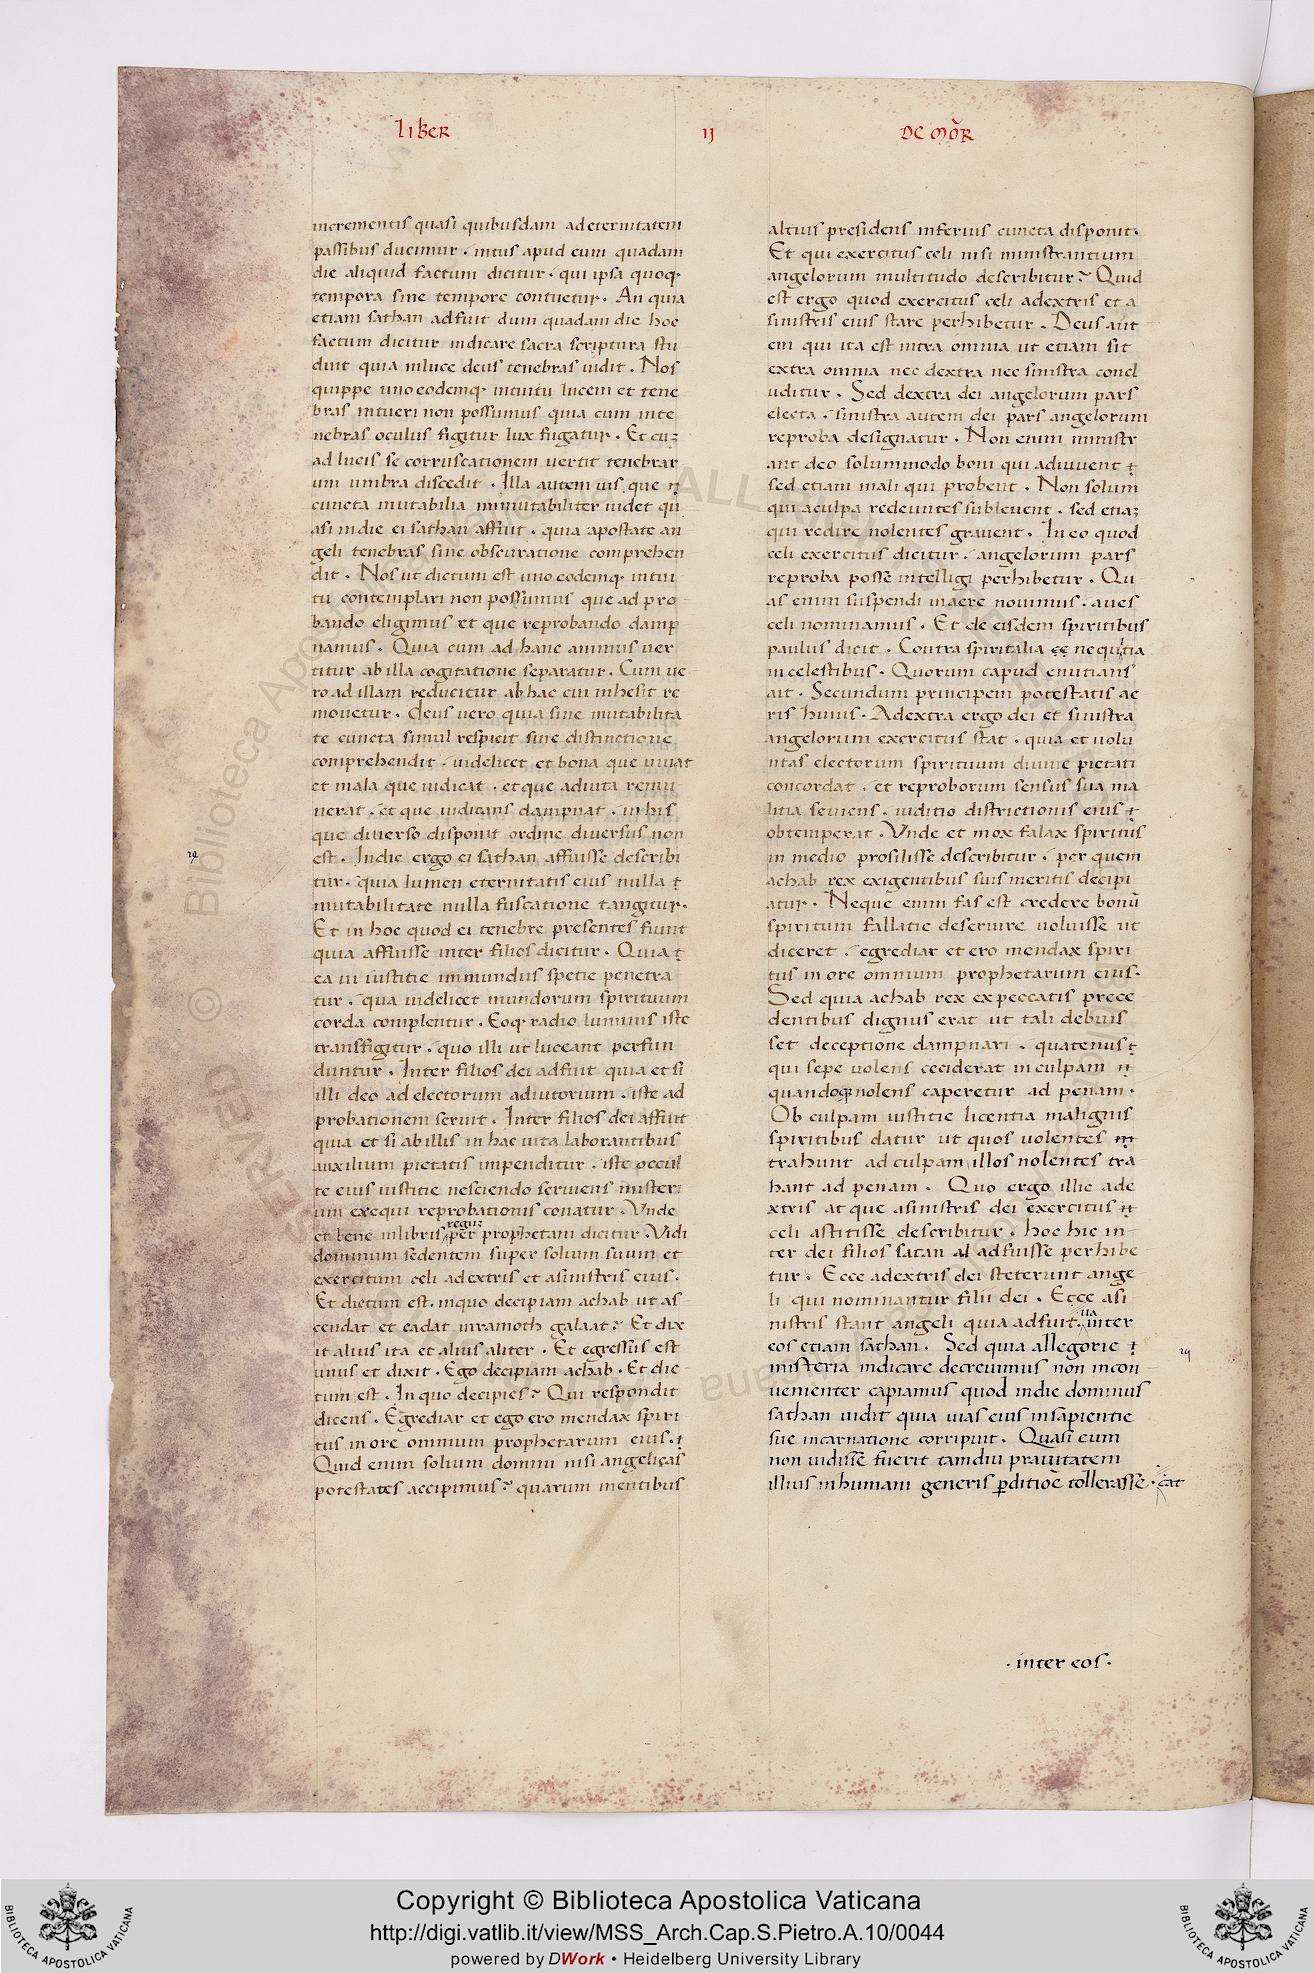 liber
ij
De mor̄
incrementis quasi quibusdam ad eternitatem
passibus ducimur . intus apud eum quadam
die aliquid factum dicitur . qui ipsa quoq.
tempora sine tempore contuetur . An quia
etiam sathan adfuit dum quadam die hoc
factum dicitur indicare sacra scriptura stu
duit quia in luce deus tenebras uidit . Nos
quippe uno eodemq. intuitu lucem et tene
bras intueri non possumus quia cum in te
nebras oculus figitur lux fugatur . Et cuz
ad lucis se corruscationem uertit tenebrar
um umbra discedit . Illa autem uis que
cuncta mutabilia inmutabiliter uidet qu
asi in die ei sathan affuit . quia apostate an
geli tenebras sine obscuratione comprehen
dit . Nos ut dictum est uno eodemq. intui
tu contemplari non possumus que ad pro
bando eligimus et que reprobando damp
namus . Quia cum ad hanc animus uer
titur ab illa cogitatione separatur . Cum ue
ro ad illam reducitur ab hac cui inhesit re
mouetur . Deus uero quia sine mutabilita
te cuncta simul respicit sine distinctione
comprehendit . uidelicet et bona que iuuat
et mala que iudicat . et que adiuta remu
nerat . et que iudicans dampnat . in his
que diuerso disponit ordine diuersus non
est . In die ergo ei sathan affuisse describi
tur . quia lumen eternitatis eius nulla
mutabilitate nulla fuscatione tangitur .
Et in hoc quod ei tenebre presentes fiunt
quia affuisse inter filios dicitur . Quia
ea ui iustitie inmundus spetie penetra
tur . qua uidelicet mundorum spirituum
corda complentur . Eoq. radio luminis iste
transfigitur . quo illi ut luceant perfun
duntur . Inter filios dei adfuit quia et si
illi deo ad electorum adiutorium . iste ad
probationem seruit . Inter filios dei affuit
quia et si ab illis in hac uita laborantibus
auxilium pietatis impenditur . iste occul
te eius iustitie nesciendo seruiens misteri
um exequi reprobationis conatur . Vnde
reguz
et bene in libris per prophetam dicitur . Vidi
dominum sedentem super solium suum et
exercitum celi ad extris et asinistris eius .
Et dictum est . in quo decipiam achab ut as
cendat et cadat in ramoth galaat ? Et dix
it alius ita et alius aliter . Et egressus est
unus et dixit . Ego decipiam achab . Et dic
tum est . In quo decipies ? Qui respondit
dicens . Egrediar et ego ero mendax spiri
tus in ore omnium prophetarum eius .
Quid enim solium domini nisi angelicas
potestates accipimus ? quarum mentibus
altius presidens inferius cuncta disponit .
Et qui exercitus celi nisi ministrantium
angelorum multitudo describitur ? Quid
est ergo quod exercitus celi adextris et a
sinistris eius stare perhibetur . Deus aut
em qui ita est intra omnia ut etiam sit
extra omnia nec dextra nec sinistra concl
uditur . Sed dextra dei angelorum pars
electa . sinistra autem dei pars angelorum
reproba designatur . Non enim ministr
ant deo solummodo boni qui adiuuent
sed etiam mali qui probent . Non solum
qui aculpa redeuntes subleuent . sed etiaz
qui redire nolentes grauent . In eo quod
celi exercitus dicitur . angelorum pars
reproba posse intelligi perhibetur . Qu
as enim suspendi in aere nouimus . aues
celi nominamus . Et de eisdem spiritibus
paulus dicit . Contra spiritalia nequitia
in celestibus . Quorum capud enutians
ait . Secundum principem potestatis ae
ris huius . Adextra ergo dei et sinistra
angelorum exercitus stat . quia et uolu
ntas electorum spirituum diuine pietati
concordat . et reproborum sensus sua ma
litia seruiens . iuditio districtionis eius
obtemperat . Vnde et mox falax spiritus
in medio prosilisse describitur . per quem
achab rex exigentibus suis meritis decipi
atur . Neque enim fas est credere bonū
spiritum fallatie deseruire uoluisse ut
diceret . egrediar et ero mendax spiri
tus in ore omnium prophetarum eius .
Sed quia achab rex ex peccatis prece
dentibus dignus erat ut tali debuis
set deceptione dampnari . quatenus
qui sepe uolens ceciderat in culpam
quandoq. nolens caperetur ad penam .
Ob culpam iustitie licentia malignis
spiritibus datur ut quos uolentes in
trahunt ad culpam illos nolentes tra
hant ad penam . Quo ergo illic ade
xtris at que asinistris dei exercitus
celi astitisse describitur . hoc hic in
ter dei filios satan al adfuisse perhibe
tur . Ecce adextris dei steterunt ange
li qui nominantur filii dei . Ecce asi
nistris stant angeli quia adfuit . inter
eos etiam sathan . Sed quia allegorie
misteria indicare decreuimus non incon
uenienter capiamus quod in die dominus
sathan uidit quia uias eius in sapientie
sue incarnatione corripuit . Quasi eum
non uidisse fuerit tamdiu prauitatem
illius in humani generis pditiōe tollerasse .
. inter eos .
Copyright © Biblioteca Apostolica Vaticana
http://digi.vatlib.it/view/MSS_Arch.Cap.S.Pietro.A.10/0044
powered by DWork • Heidelberg University Library
BIBLIOTECA APOSTOLICA VATICANA
BIBLIOTECA APOSTOLICA VATICANA